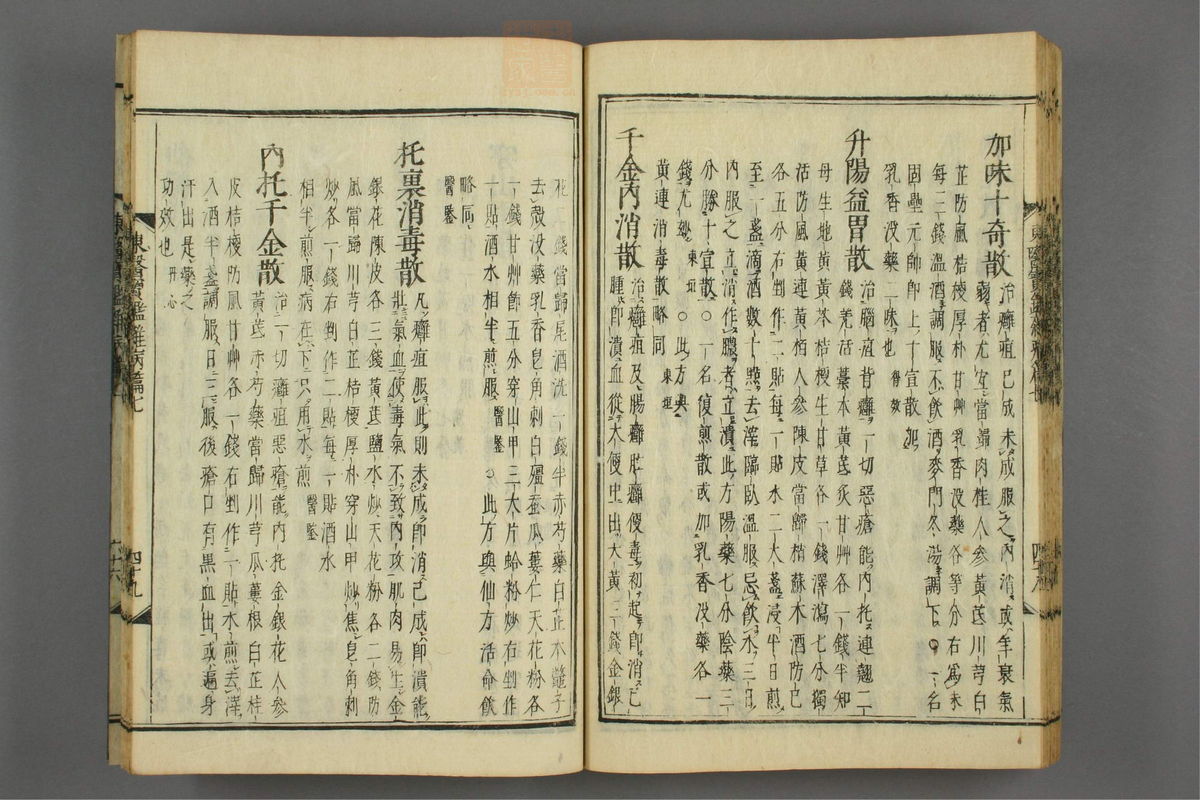 加味十奇散 治癰疽已成未成服之內消或年衰氣
弱者尤宜當歸肉桂人參黃芪川芎白
芷防風桔梗厚朴甘艸乳香沒藥各等分右爲末
每三錢溫酒調服不飮酒麥門冬湯調下○一名
固壘元帥卽上十宣散加
乳香沒藥二味也 得效
升陽益胃散 治腦疽背癰一切惡瘡能內托連翹二
錢羌活藁本黃芪炙甘艸各一錢半知
母生地黃黃芩桔梗生甘草各一錢澤瀉七分獨
活防風黃連黃栢人參陳皮當歸梢蘇木酒防己
各五分右剉作二貼每一貼水二大盞浸半日煎
至一盞滴酒數十點去滓臨臥溫服忌飮水三日
內服之立消作膿者立潰此方陽藥七分陰藥三
分勝十宣散○一名復煎散或加乳香沒藥各一
錢尤妙 東垣 ○此方與
黃連消毒散略同 東垣
千金內消散 治癰疽及腸癰肚癰便毒初起卽消已
腫卽潰血從大便中出大黃三錢金銀
花二錢當歸尾酒洗一錢半赤芍藥白芷木鱉子
去殼沒藥乳香皂角刺白殭蚕瓜蔞仁天花粉各
一錢甘艸節五分穿山甲三大片蛤粉炒右剉作
一貼酒水相半煎服 醫鑒 ○此方與仙方活命飮
略同
醫鑒
托裏消毒散 凡癰疽服此則未成卽消已成卽潰能
壯氣血使毒氣不致內攻肌肉易生金
銀花陳皮各三錢黃芪鹽水炒天花粉各二錢防
風當歸川芎白芷桔梗厚朴穿山甲炒焦皂角刺
炒各一錢右剉作二貼每一貼酒水
相半煎服病在下只用水煎 醫鑒
內托千金散 治一切癰疽惡瘡能內托金銀花人參
黃芪赤芍藥當歸川芎瓜蔞根白芷桂
皮桔梗防風甘艸各一錢右剉作一貼水煎去滓
入酒半盞調服日三服後瘡口有黑血出或遍身
汗出是藥之
功效也 丹心
東醫寶鑑雜病篇七 四十九